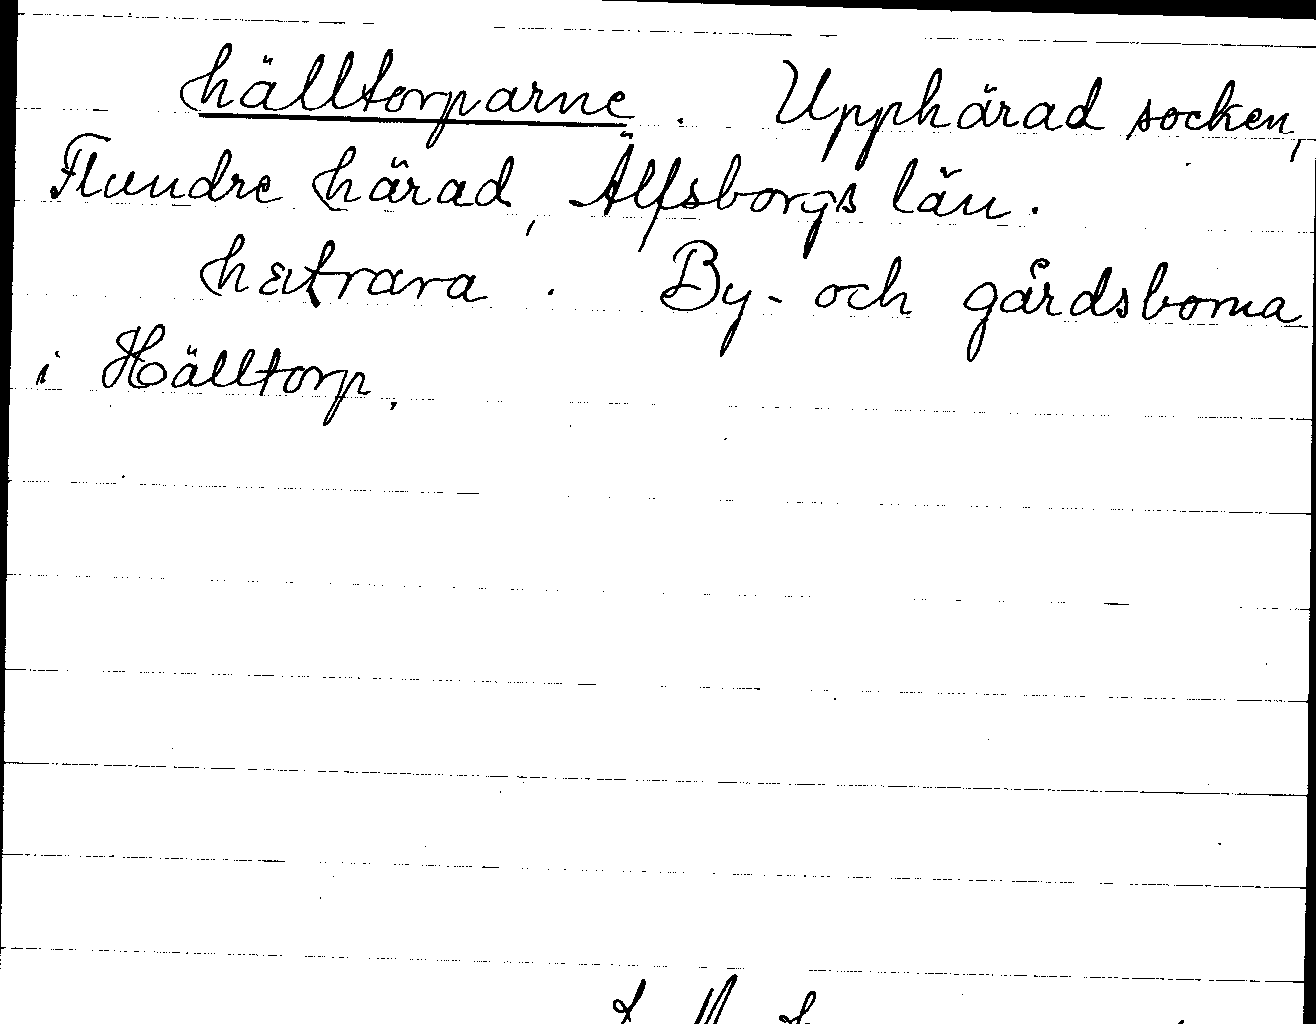 hälltorparne. Upphärad socken,
Flundre härad, Älfsborgs län.
hætrara. By- och gårdsborna
i Hälltorp.